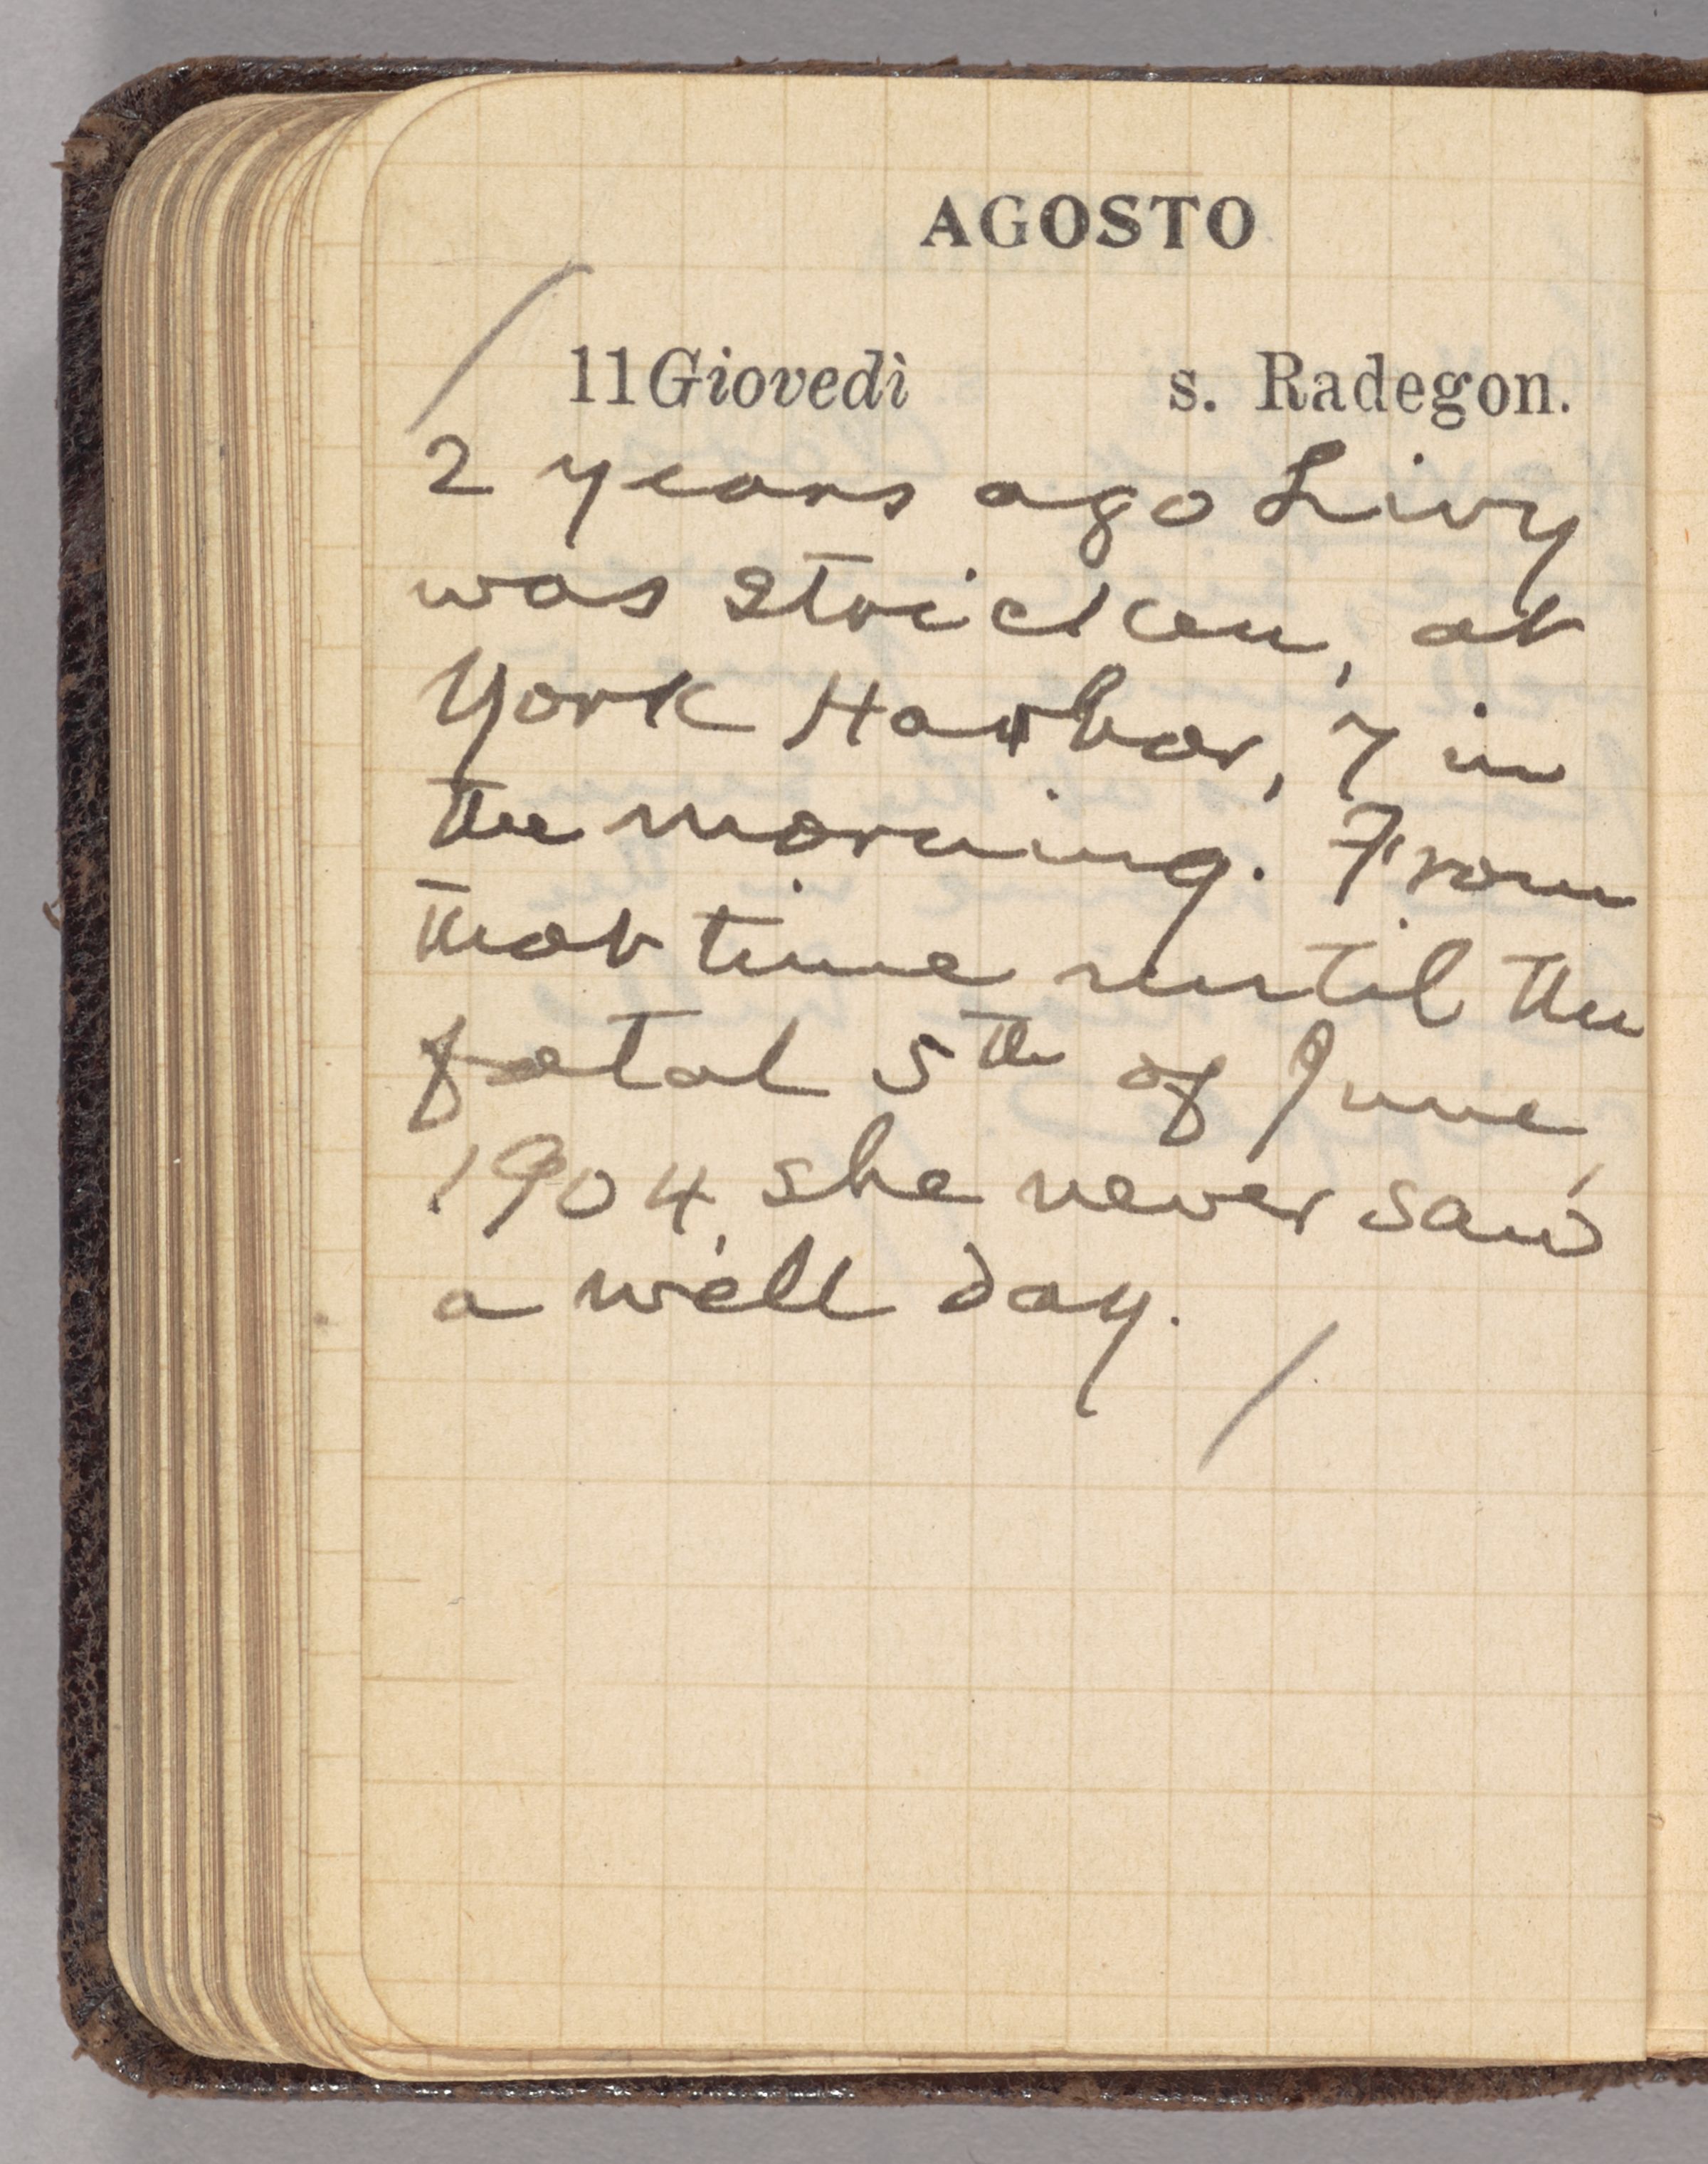 AGOSTO
11 Giovedì s. Radegon.
2 years ago Livy
was stricken, at
York Harbor, 7 in
the morning. From
that time until the
fatal 5th of June,
1904, she never saw
a well day.